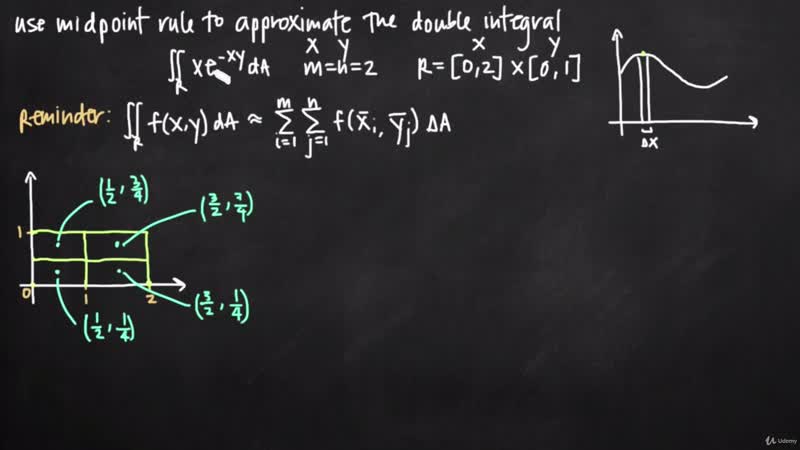 use midpoint rule to approximate the double integral
x y x y
∬_R xe^{-xy} dA m=n=2 R=[0,2]×[0,1]
Reminder: ∬_R f(x,y) dA ≈ \sum_{i=1}^{m} \sum_{j=1}^{n} f(x̄_i, ȳ_j) ΔA
Δx
(1/2, 3/4)
(3/2, 3/4)
1
0 1 2
(3/2, 1/4)
(1/2, 1/4)
Udemy